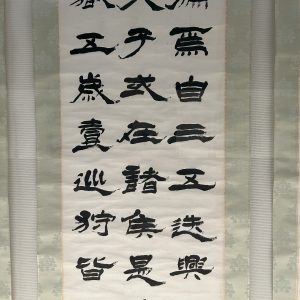 徧焉自三五迭興
天子或在諸侯是
嶽五歲壹巡狩皆